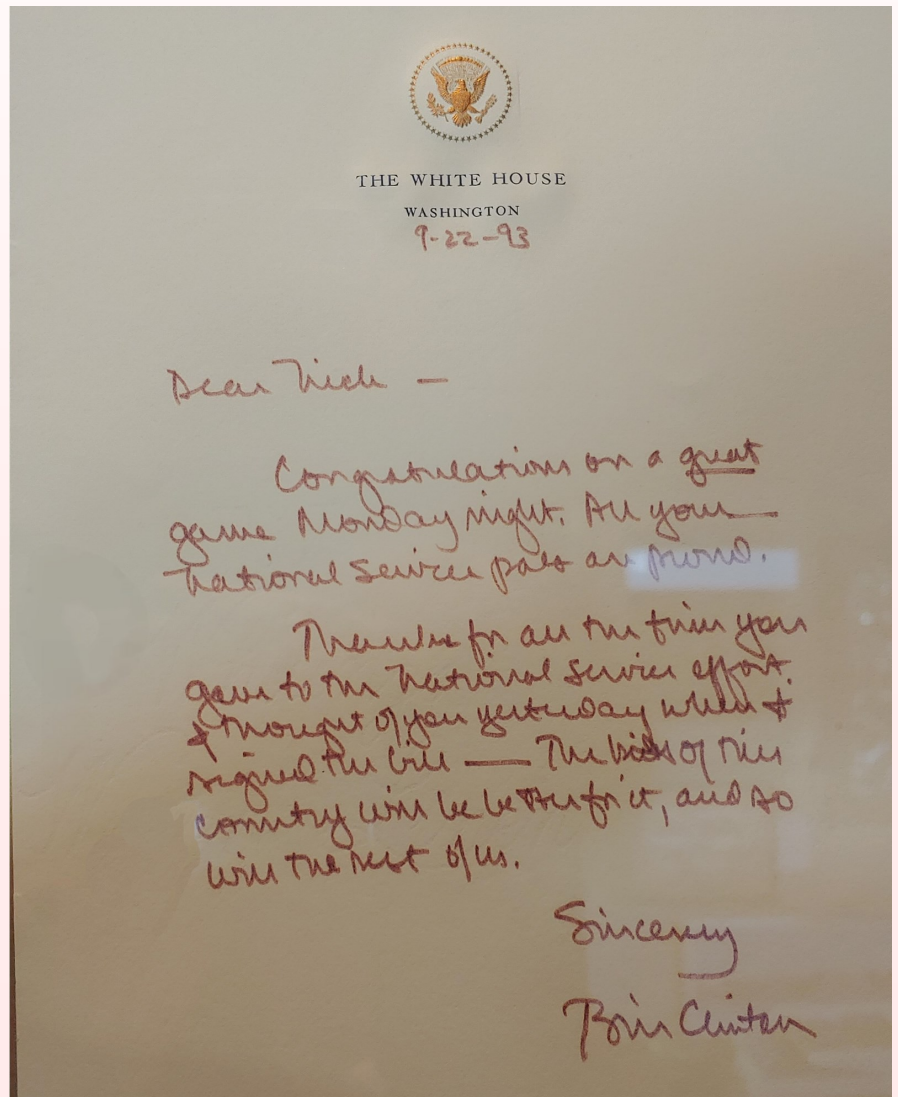 THE WHITE HOUSE
WASHINGTON
9-22-93
Dear Nick —
Congratulations on a great
game Monday night. All your
national service pals are proud.
Thanks for all the time you
gave to the national service effort.
I thought of you yesterday when I
signed the bill — The kids of this
country will be better for it, and so
will the rest of us.
Sincerely
Bill Clinton